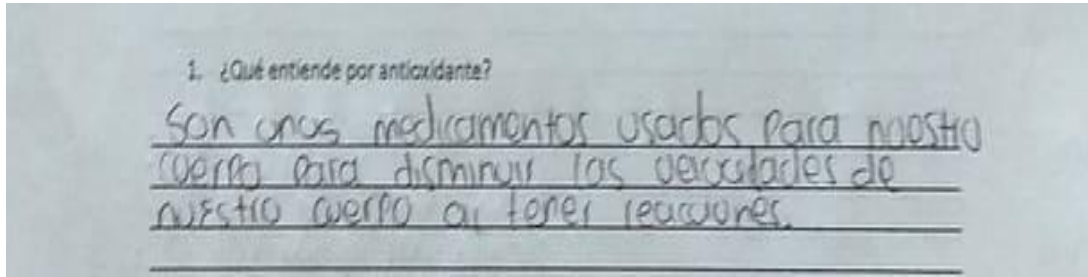 1. ¿Qué entiende por antioxidante?
Son unos medicamentos usados para nuestro
cuerpo para disminuir las velocidades de
nuestro cuerpo al tener reacciones.